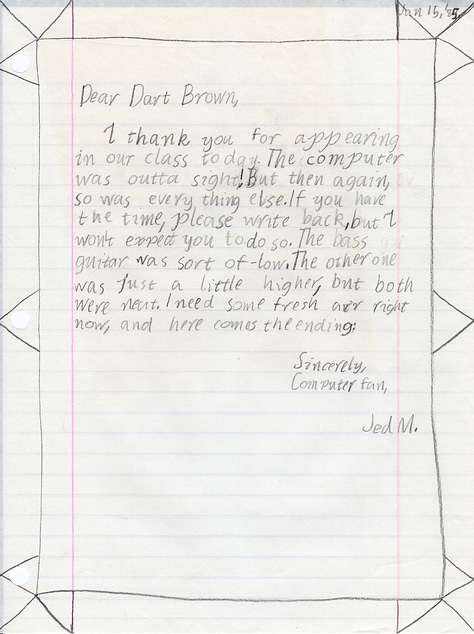 Jan 15, '25
Dear Dart Brown,
I thank you for appearing
in our class today. The computer
was outta sight! But then again,
so was every thing else. If you have
the time, please write back, but I
won't expect you to do so. The bass
guitar was sort of-low. The other one
was just a little higher, but both
were neat. I need some fresh air right
now, and here comes the ending:
Sincerely,
Computer fan,
Jed M.